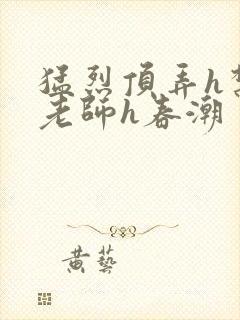 猛烈頂弄h
老師h春潮
黄藝